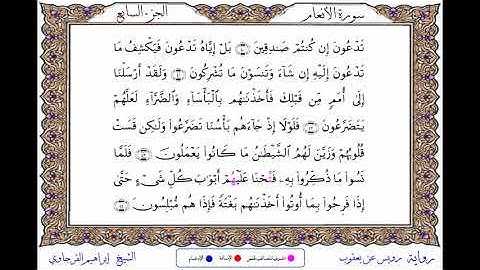 سورة الأنعام الجزء السابع
تَدْعُونَ إِن كُنتُمْ صَٰدِقِينَ ۝ بَلْ إِيَّاهُ تَدْعُونَ فَيَكْشِفُ مَا
تَدْعُونَ إِلَيْهِ إِن شَآءَ وَتَنسَوْنَ مَا تُشْرِكُونَ ۝ وَلَقَدْ أَرْسَلْنَآ
إِلَىٰٓ أُمَمٍ مِّن قَبْلِكَ فَأَخَذْنَٰهُم بِٱلْبَأْسَآءِ وَٱلضَّرَّآءِ لَعَلَّهُمْ
يَتَضَرَّعُونَ ۝ فَلَوْلَآ إِذْ جَآءَهُم بَأْسُنَا تَضَرَّعُوا۟ وَلَٰكِن قَسَتْ
قُلُوبُهُمْ وَزَيَّنَ لَهُمُ ٱلشَّيْطَٰنُ مَا كَانُوا۟ يَعْمَلُونَ ۝ فَلَمَّا
نَسُوا۟ مَا ذُكِّرُوا۟ بِهِۦ فَتَّحْنَا عَلَيْهُمْ أَبْوَٰبَ كُلِّ شَىْءٍ حَتَّىٰٓ
إِذَا فَرِحُوا۟ بِمَآ أُوتُوٓا۟ أَخَذْنَٰهُم بَغْتَةً فَإِذَا هُم مُّبْلِسُونَ ۝
رواية رويس عن يعقوب الإمالة الإدغام الشيخ إبراهيم الفرجاوي